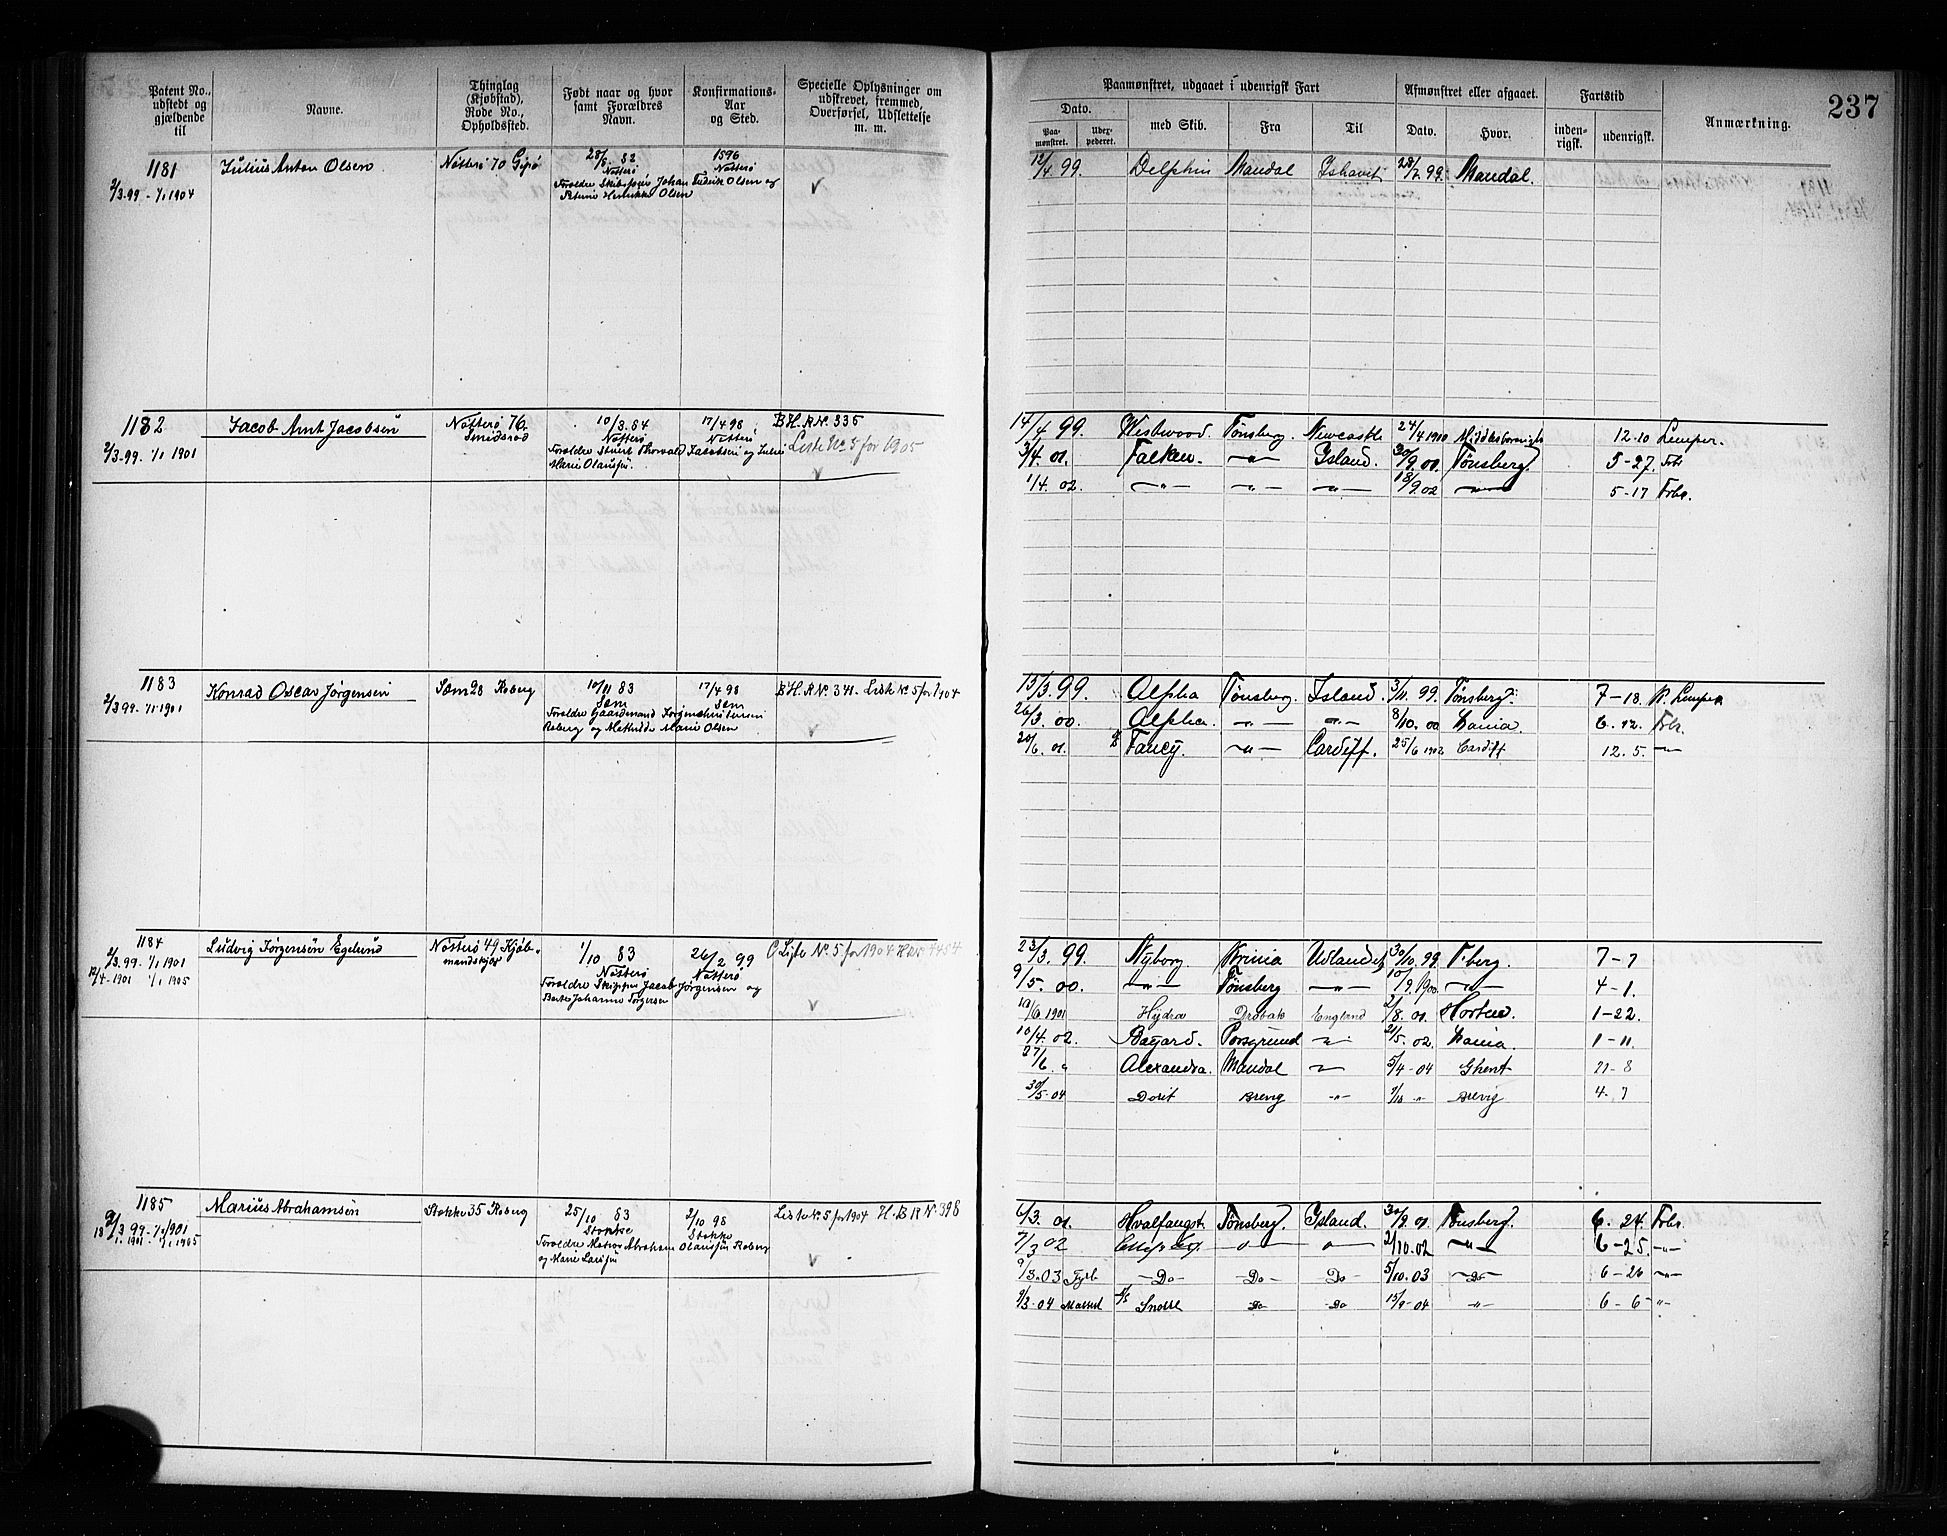 237
Patent No., udstedt og gjældende til
Navne.
Thinglag (Kjøbstad), Rode No., Opholdssted.
Født naar og hvor samt Forældres Navn.
Konfirmations-Aar og Sted.
Specielle Oplysninger om udskrevet, fremmed, Overførsel, Udslettelse m. m.
Paamønstret, udgaaet i udenrigsk Fart
Afmønstret eller afgaaet.
Fartstid
Anmærkning.
Dato.
med Skib.
Fra
Til
Dato.
Hvor.
inden-rigsk.
udenrigsk.
Paa-mønstret.
Udex-pederet.
1181 Julius Anton Olsen Nøtterø 70 Gipø 28/8 82. 1596
2/3.99 - 1/1 1904 Nøtterø Nøtterø
Forældre Johan Fredrik Olsen og
Petrine Henrikke Olsen
12/4 99. Delphin Mandal Ishavet 28/7 99. Mandal.
1182 Jacob Arnt Jacobsen Nøtterø 76. 10/3.84 17/4 98 B H. R No. 335
2/3.99. 1/1 1901 Smidsrød Nøtterø Nøtterø Liste No 5 for 1905
Forældre Stuert Thorvald Jacobsen og
Marie Olausen.
14/4 99. Westwood. Tønsberg. Newcastle 24/4 1910 12-10 Lemper.
3/4. 01. Falken. -"- Island. 30/9. 01. Tønsberg. 5-27. Frbr.
1/4. 02. -"- -"- -"- 18/9. 02 -"- 5-17 Frbr.
1183 Konrad Oscar Jørgensen Sem 28 Roberg 10/11 83 17/4 98 B H. R No. 341. Liste No. 5 for 1904
2/3 99. 1/1 1901 Sem Sem
Forældre Gaardmand Jørgen Christensen
Roberg og Mathilde Marie Olsen
15/3. 99. Alpha Tønsberg. Island. 3/11. 99. Tønsberg. 7-18. K. Lemper
26/3. 00. Alpha. -"- -"- 8/10. 00 6. 12. Frbr.
20/6. 01. Fancy. -"- Cardiff. 25/6 1902 Cardiff 12. 5. -"-
1184 Ludvig Jørgensen Egelund Nøtterø 49 Kjøb- 1/10 83 26/2 99 C Liste No. 5 for 1904
2/3.99. 1/1 1901 mandskjær Nøtterø Nøtterø
12/4-1901 1/1 1905 Forældre Skipper Jacob Jørgensen og
Berte Johanne Jørgensen
23/3. 99. Nyborg. Udlandet 30/10. 99. T.berg. 7-7
9/5. 00. -"- Tønsberg -"- 10/9. 1900 -"- 4-1.
19/6. 1901 Hydra Drøbak England 2/8. 01. Horten. 1-22.
10/4. 02. Porsgrund -"- 21/5. 02. 1-11.
27/6. " Alexandra. Mandal -"- 5/4-04 Ghent 21-8
30/5-04 Dorit Brevig -"- 7/10 -"- Brevig 4. 7
1185 Marius Abrahamsen Stokke 35 Roberg 25/10 83 2/10 98 Liste No. 5 for 1904 H. B R No. 398
2/3 99. - 1/1 1901 Stokke Stokke
1901. 1/1 1905 Forældre Matros Abraham Olausen Roberg
og Marie Larsen
6/3. 01. Hvalfangst. Tønsberg. Island. 30/9. 01. Tønsberg. 6. 24. Frbr.
7/3 02 -"- -"- 2/10-02 -"- 6-25. -"-
9/3-03 Fyrb -Do- -Do- Do 5/10. 03 -Do- 6-26 -"-
9/3-04 Matros Snorre Do Do 15/9-04 -"- 6-6 -"-